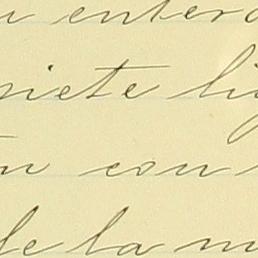 u entera
niete li
n con
de la m